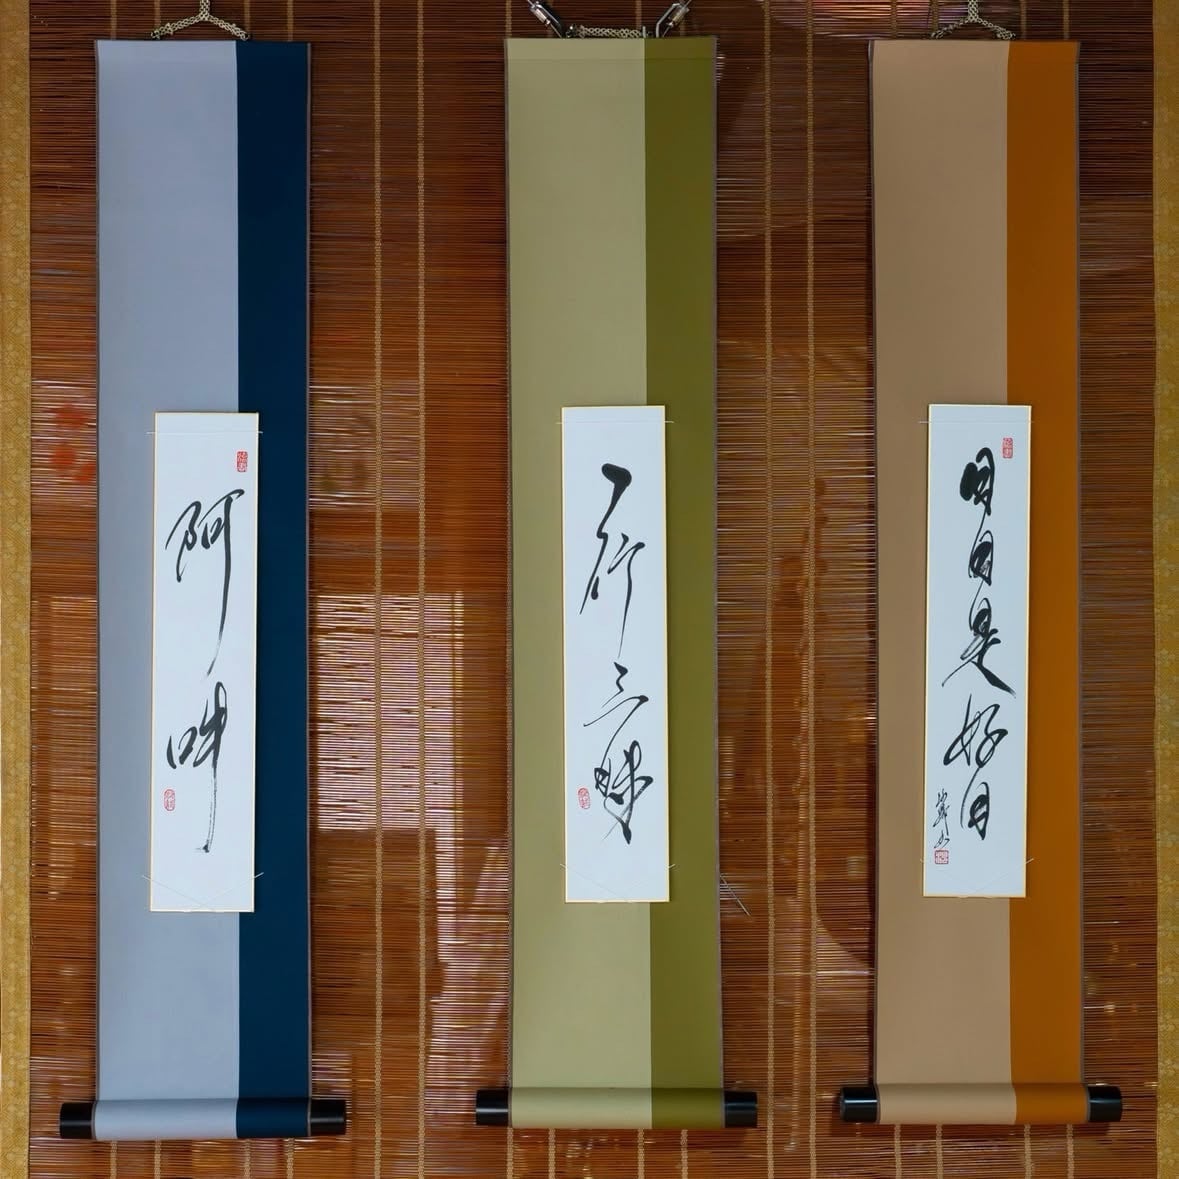 阿吽
一行三昧
日日是好日